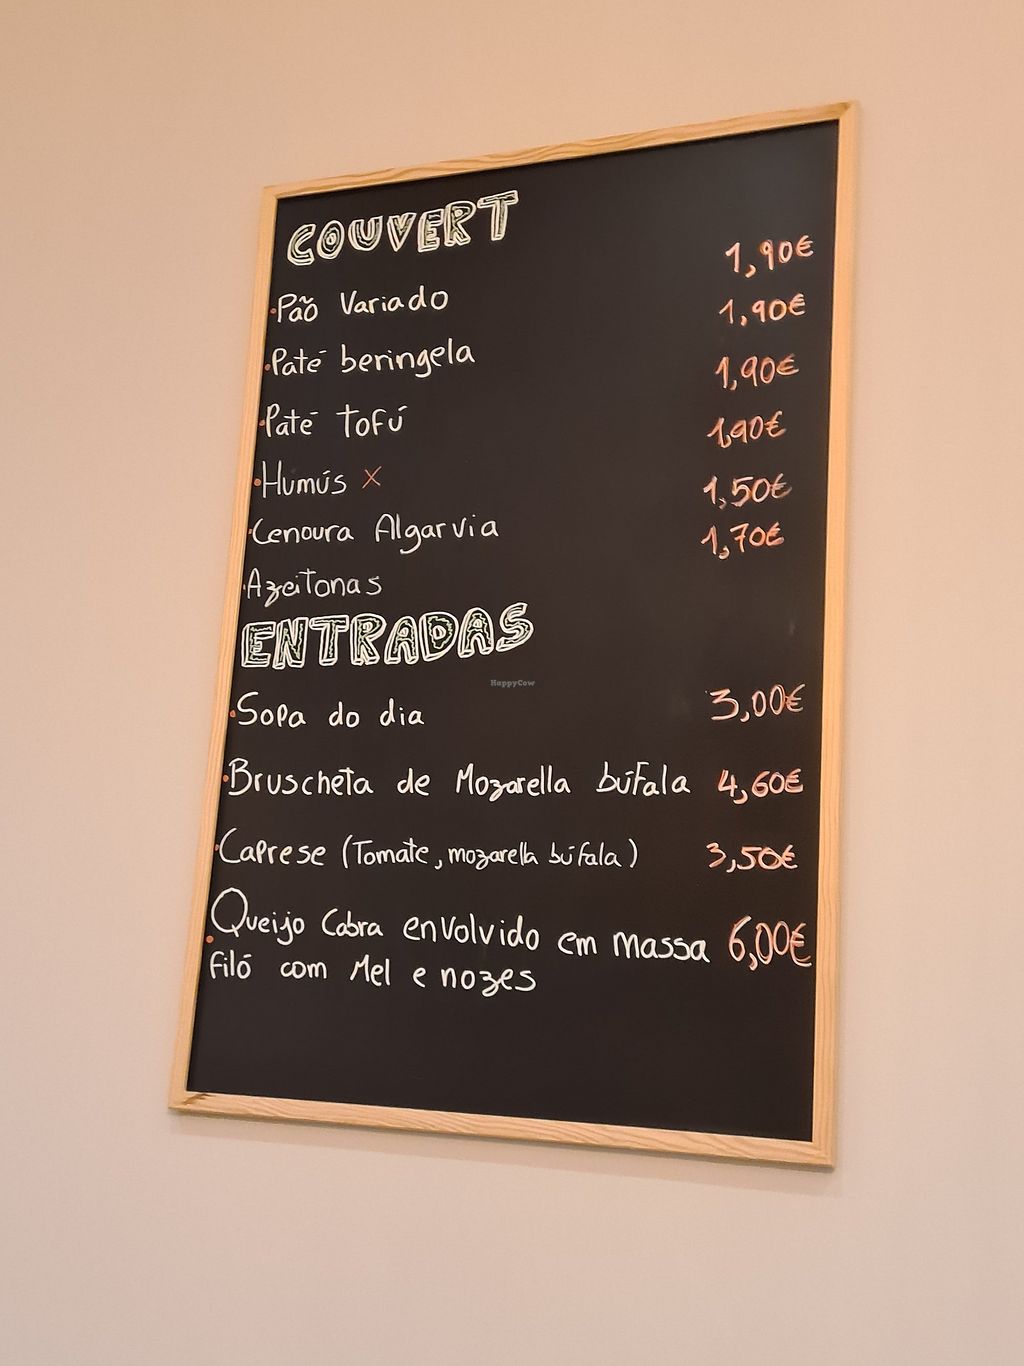 COUVERT
Pão Variado 1,90€
Paté beringela 1,90€
Paté Tofú 1,90€
Humús X 1,90€
Cenoura Algarvia 1,50€
Azeitonas 1,70€
ENTRADAS
HappyCow
Sopa do dia 3,00€
Bruscheta de Mozarella búfala 4,60€
Caprese (Tomate, mozarella búfala) 3,50€
Queijo Cabra envolvido em massa 6,00€
Filó com Mel e nozes